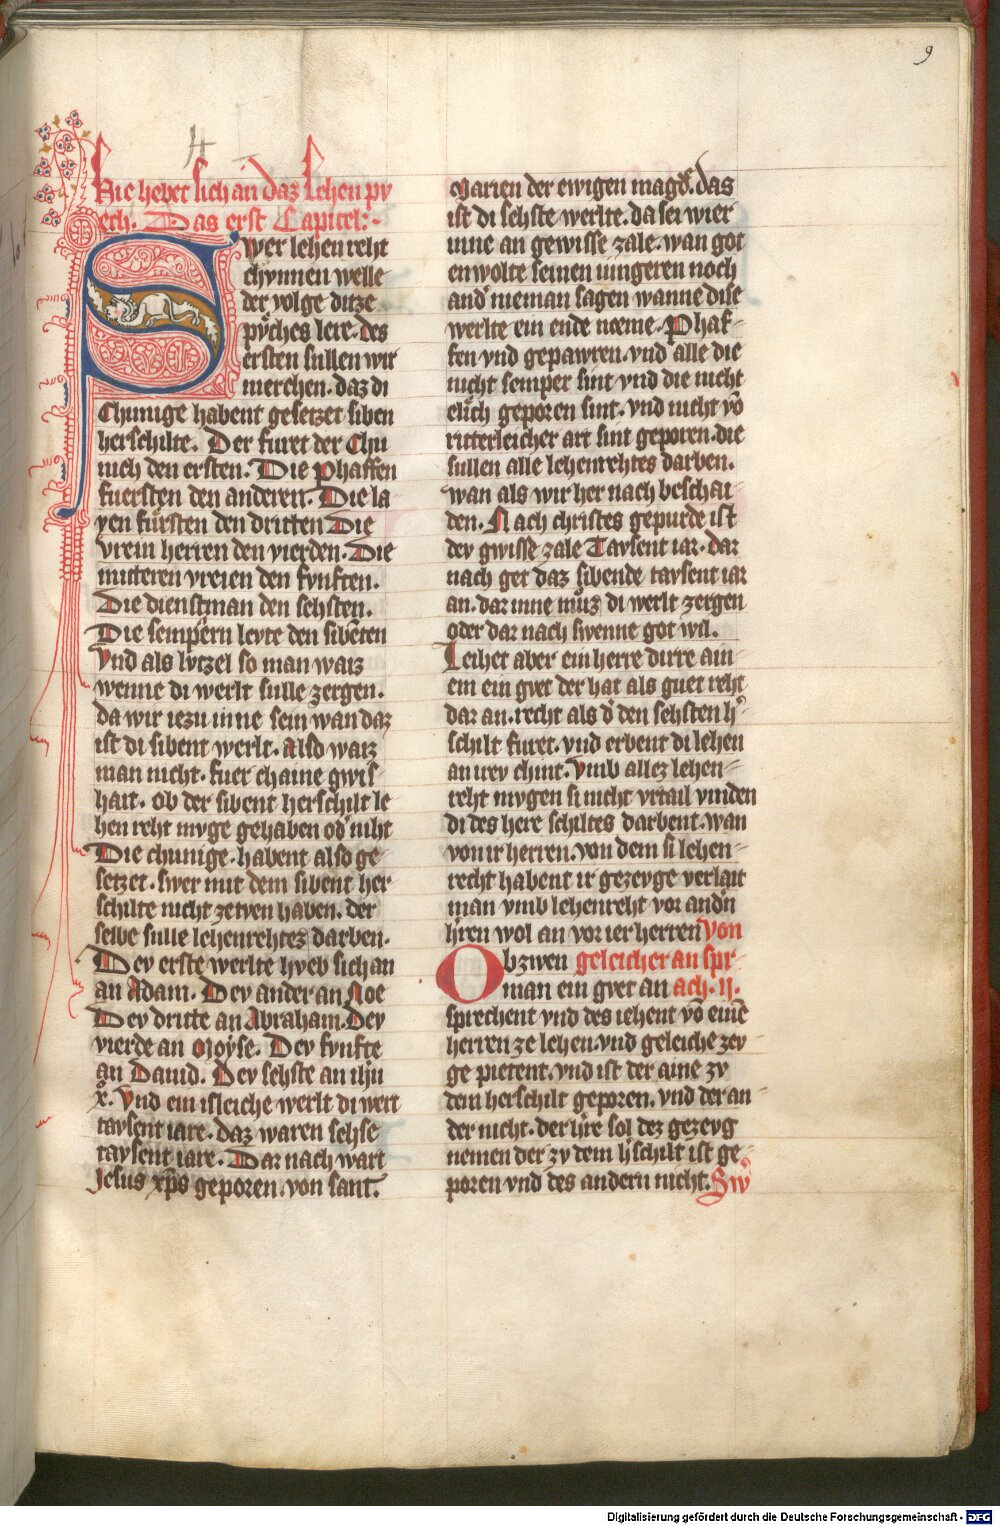 9
Hie hebet sich an daz Lehen pv
ech. Das erst Capitel:-
Swer lehen reht
chynnen welle
der volge ditze
pvͦches lere. des
ersten sullen wir
merchen. daz di
Chunige habent gesetzet siben
herschilte. Der furet der Chu
nich den ersten. Die phaffen
fuersten den anderen. Die la
yen fuͤrsten den dritten Die
vrein herren den vierden. Die
mitteren vreien den fynften.
Die dienstman den sehsten.
Die sempern leyte den sibēten
Vnd als lvtzel so man waiz
wenne di werlt sulle zergen.
da wir iezu inne sein wan daz
ist di sibent werlt. also waiz
man nicht. fuer chaine gwis
hait. ob der sibent herschilt le
hen reht myge gehaben od' niht
Die chunige. habent also ge
setzet. swer mit dem sibent her
schilte nicht zetven haben. der
selbe sulle lehenrehtez darben.
Dev erste werlte hveb sich an
an Adam. Dev ander an Noe
Dev dritte an Abraham. Dev
vierde an Moyse. Dev fynfte
an Dauid. Dev sehste an ihu
x. Vnd ein isleiche werlt di wert
tavsent iare. daz waren sehse
tavsent iare. Dar nach wart
Jesus xp̄s geporen. von sant.
Marien der ewigen magd'. das
ist di sehste werlte. da sei wier
inne an gewisse zale. wan got
enwolte seinen iungeren noch
and' nieman sagen wanne dise
werlte ein ende neme. Phaf-
fen vnd gepawren. vnd alle die
nicht semper sint vnd die nicht
elich geporen sint. vnd nicht vō
ritterleicher art sint geporen. die
sullen alle lehenrehtes darben.
wan als wir her nach beschai-
den. Nach christes gepurde ist
dev gwisse zale Tavsent iar. dar
nach get daz sibende tavsent iar
an. dar inne muͤz di werlt zergen
oder dar nach swenne got wil.
Leihet aber ein herre dirre ain-
em ein gvet der hat als guet reht
dar an. recht als d' den sehsten h'
schilt furet. vnd erbent di lehen
an irev chint. Vmb allez lehen-
reht mvgen si nicht vrtail vinden
di des here schiltes darbent. wan
von ir herren. von dem si lehen-
recht habent ir gezevge verlait
man vmb lehenreht vor and'n
h'ren wol an vor ier herren Von
Ob zwen geleicher an spr-
man ein gvet an ach. ij.
sprechent vnd des iehent vō einē
herren ze lehen. vnd geleiche zev-
ge pietent. vnd ist der aine zv
dem herschilt geporen. vnd der an-
der nicht. der h're sol dez gezevg
nemen der zv dem h'schilt ist ge-
poren vnd des andern nicht. Sw'
Digitalisierung gefördert durch die Deutsche Forschungsgemeinschaft - DFG